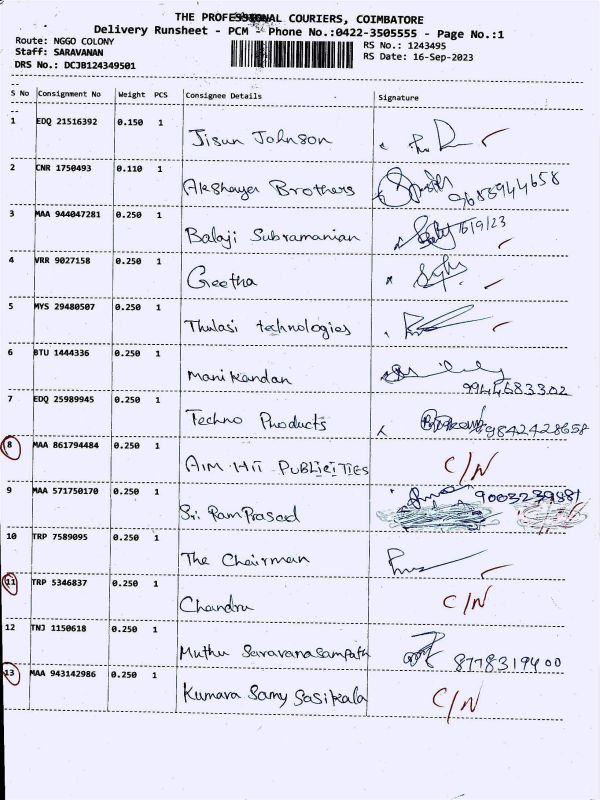 THE PROFESSIONAL COURIERS, COIMBATORE
Delivery Runsheet - PCM - Phone No.:0422-3505555 - Page No.:1
Route: NGGO COLONY RS No.: 1243495
Staff: SARAVANAN RS Date: 16-Sep-2023
DRS No.: DCJB124349501
S No Consignment No Weight PCS Consignee Details Signature
1 EDQ 21516392 0.150 1
Jisun Johnson
2 CNR 1750493 0.110 1
Akshaya Brothers
3 MAA 944047281 0.250 1
Balaji Subramanian 16/9/23
4 VRR 9027158 0.250 1
Geetha
5 MYS 29480507 0.250 1
Thulasi technologies
6 BTU 1444336 0.250 1
Manikandan 9944583302
7 EDQ 25989945 0.250 1
Techno Products 9842428658
8 MAA 861794484 0.250 1
AIM HII PUBLICITIES C/N
9 MAA 571750170 0.250 1
Sri RamPrasad 9003239881
10 TRP 7589095 0.250 1
The Chairman
11 TRP 5346837 0.250 1
Chandru C/N
12 TNJ 1150618 0.250 1
Muthu Saravanasampath 8778319400
13 MAA 943142986 0.250 1
Kumara Samy Sasikala C/N